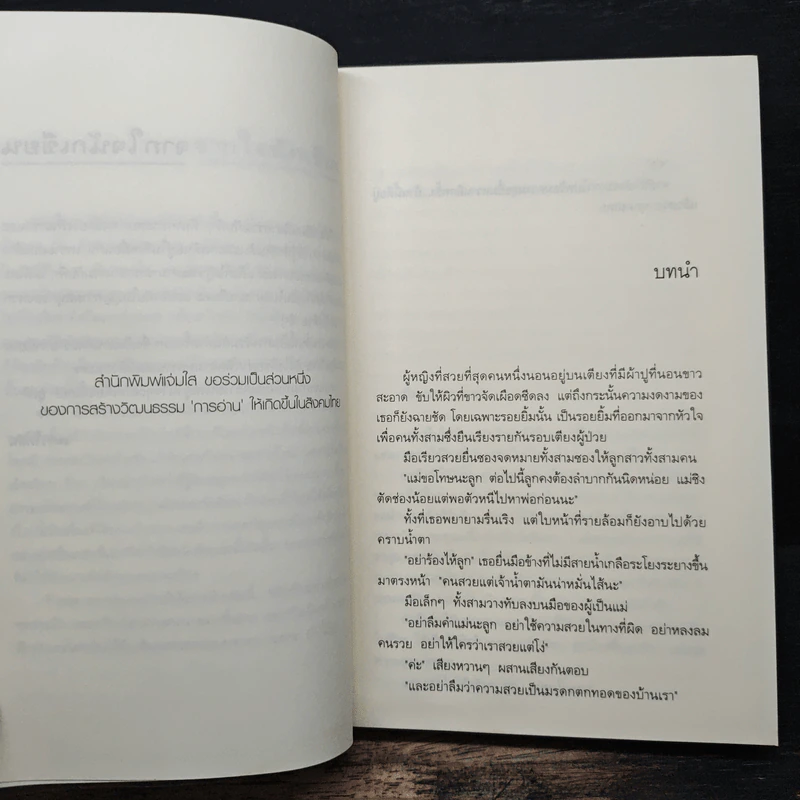 สำนักพิมพ์แจ่มใส ขอร่วมเป็นส่วนหนึ่ง
ของการสร้างวัฒนธรรม 'การอ่าน' ให้เกิดขึ้นในสังคมไทย
บทนำ
ผู้หญิงที่สวยที่สุดคนหนึ่งนอนอยู่บนเตียงที่มีผ้าปูที่นอนขาว
สะอาด ขับให้ผิวที่ขาวจัดเผือดซีดลง แต่ถึงกระนั้นความงดงามของ
เธอก็ยังฉายชัด โดยเฉพาะรอยยิ้มนั้น เป็นรอยยิ้มที่ออกมาจากหัวใจ
เพื่อคนทั้งสามซึ่งยืนเรียงรายกันรอบเตียงผู้ป่วย
มือเรียวสวยยื่นซองจดหมายทั้งสามซองให้ลูกสาวทั้งสามคน
"แม่ขอโทษนะลูก ต่อไปนี้ลูกคงต้องลำบากกันนิดหน่อย แม่ชิง
ตัดช่องน้อยแต่พอตัวหนีไปหาพ่อก่อนนะ"
ทั้งที่เธอพยายามรื่นเริง แต่ใบหน้าที่รายล้อมก็ยังอาบไปด้วย
คราบน้ำตา
"อย่าร้องไห้ลูก" เธอยื่นมือข้างที่ไม่มีสายน้ำเกลือระโยงระยางขึ้น
มาตรงหน้า "คนสวยแต่เจ้าน้ำตามันน่าหมั่นไส้นะ"
มือเล็กๆ ทั้งสามวางทับลงบนมือของผู้เป็นแม่
"อย่าลืมคำแม่นะลูก อย่าใช้ความสวยในทางที่ผิด อย่าหลงลม
คนรวย อย่าให้ใครว่าเราสวยแต่โง่"
"ค่ะ" เสียงหวานๆ ผสานเสียงกันตอบ
"และอย่าลืมว่าความสวยเป็นมรดกตกทอดของบ้านเรา"